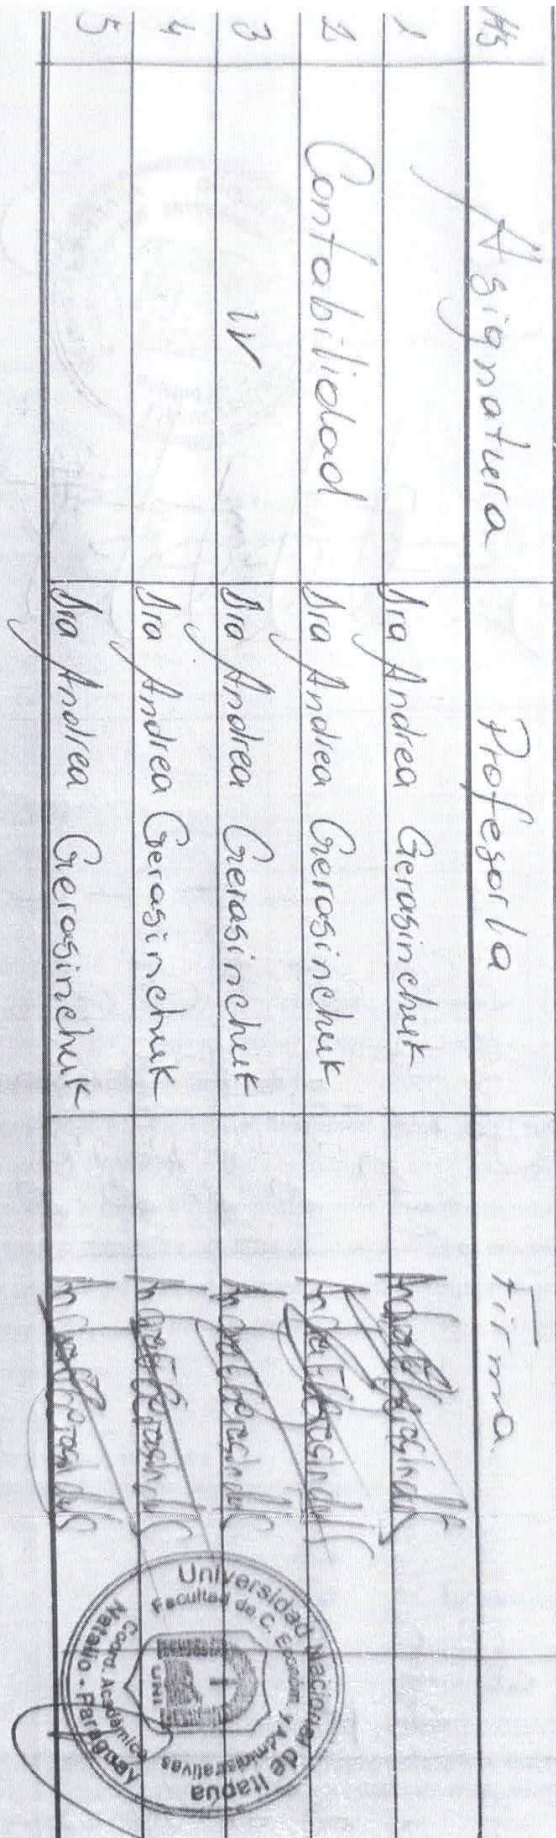 Hs Asignatura Profesor/a Firma
1 Dra Andrea Gerasinchuk
2 Contabilidad Dra Andrea Gerasinchuk
3 IV Dra Andrea Gerasinchuk
4 Dra Andrea Gerasinchuk
5 Dra Andrea Gerasinchuk
Universidad Nacional de Itapúa
Facultad de C. Económ. y Administrativas
UNI
Coord. Académica
Natalio - Paraguay